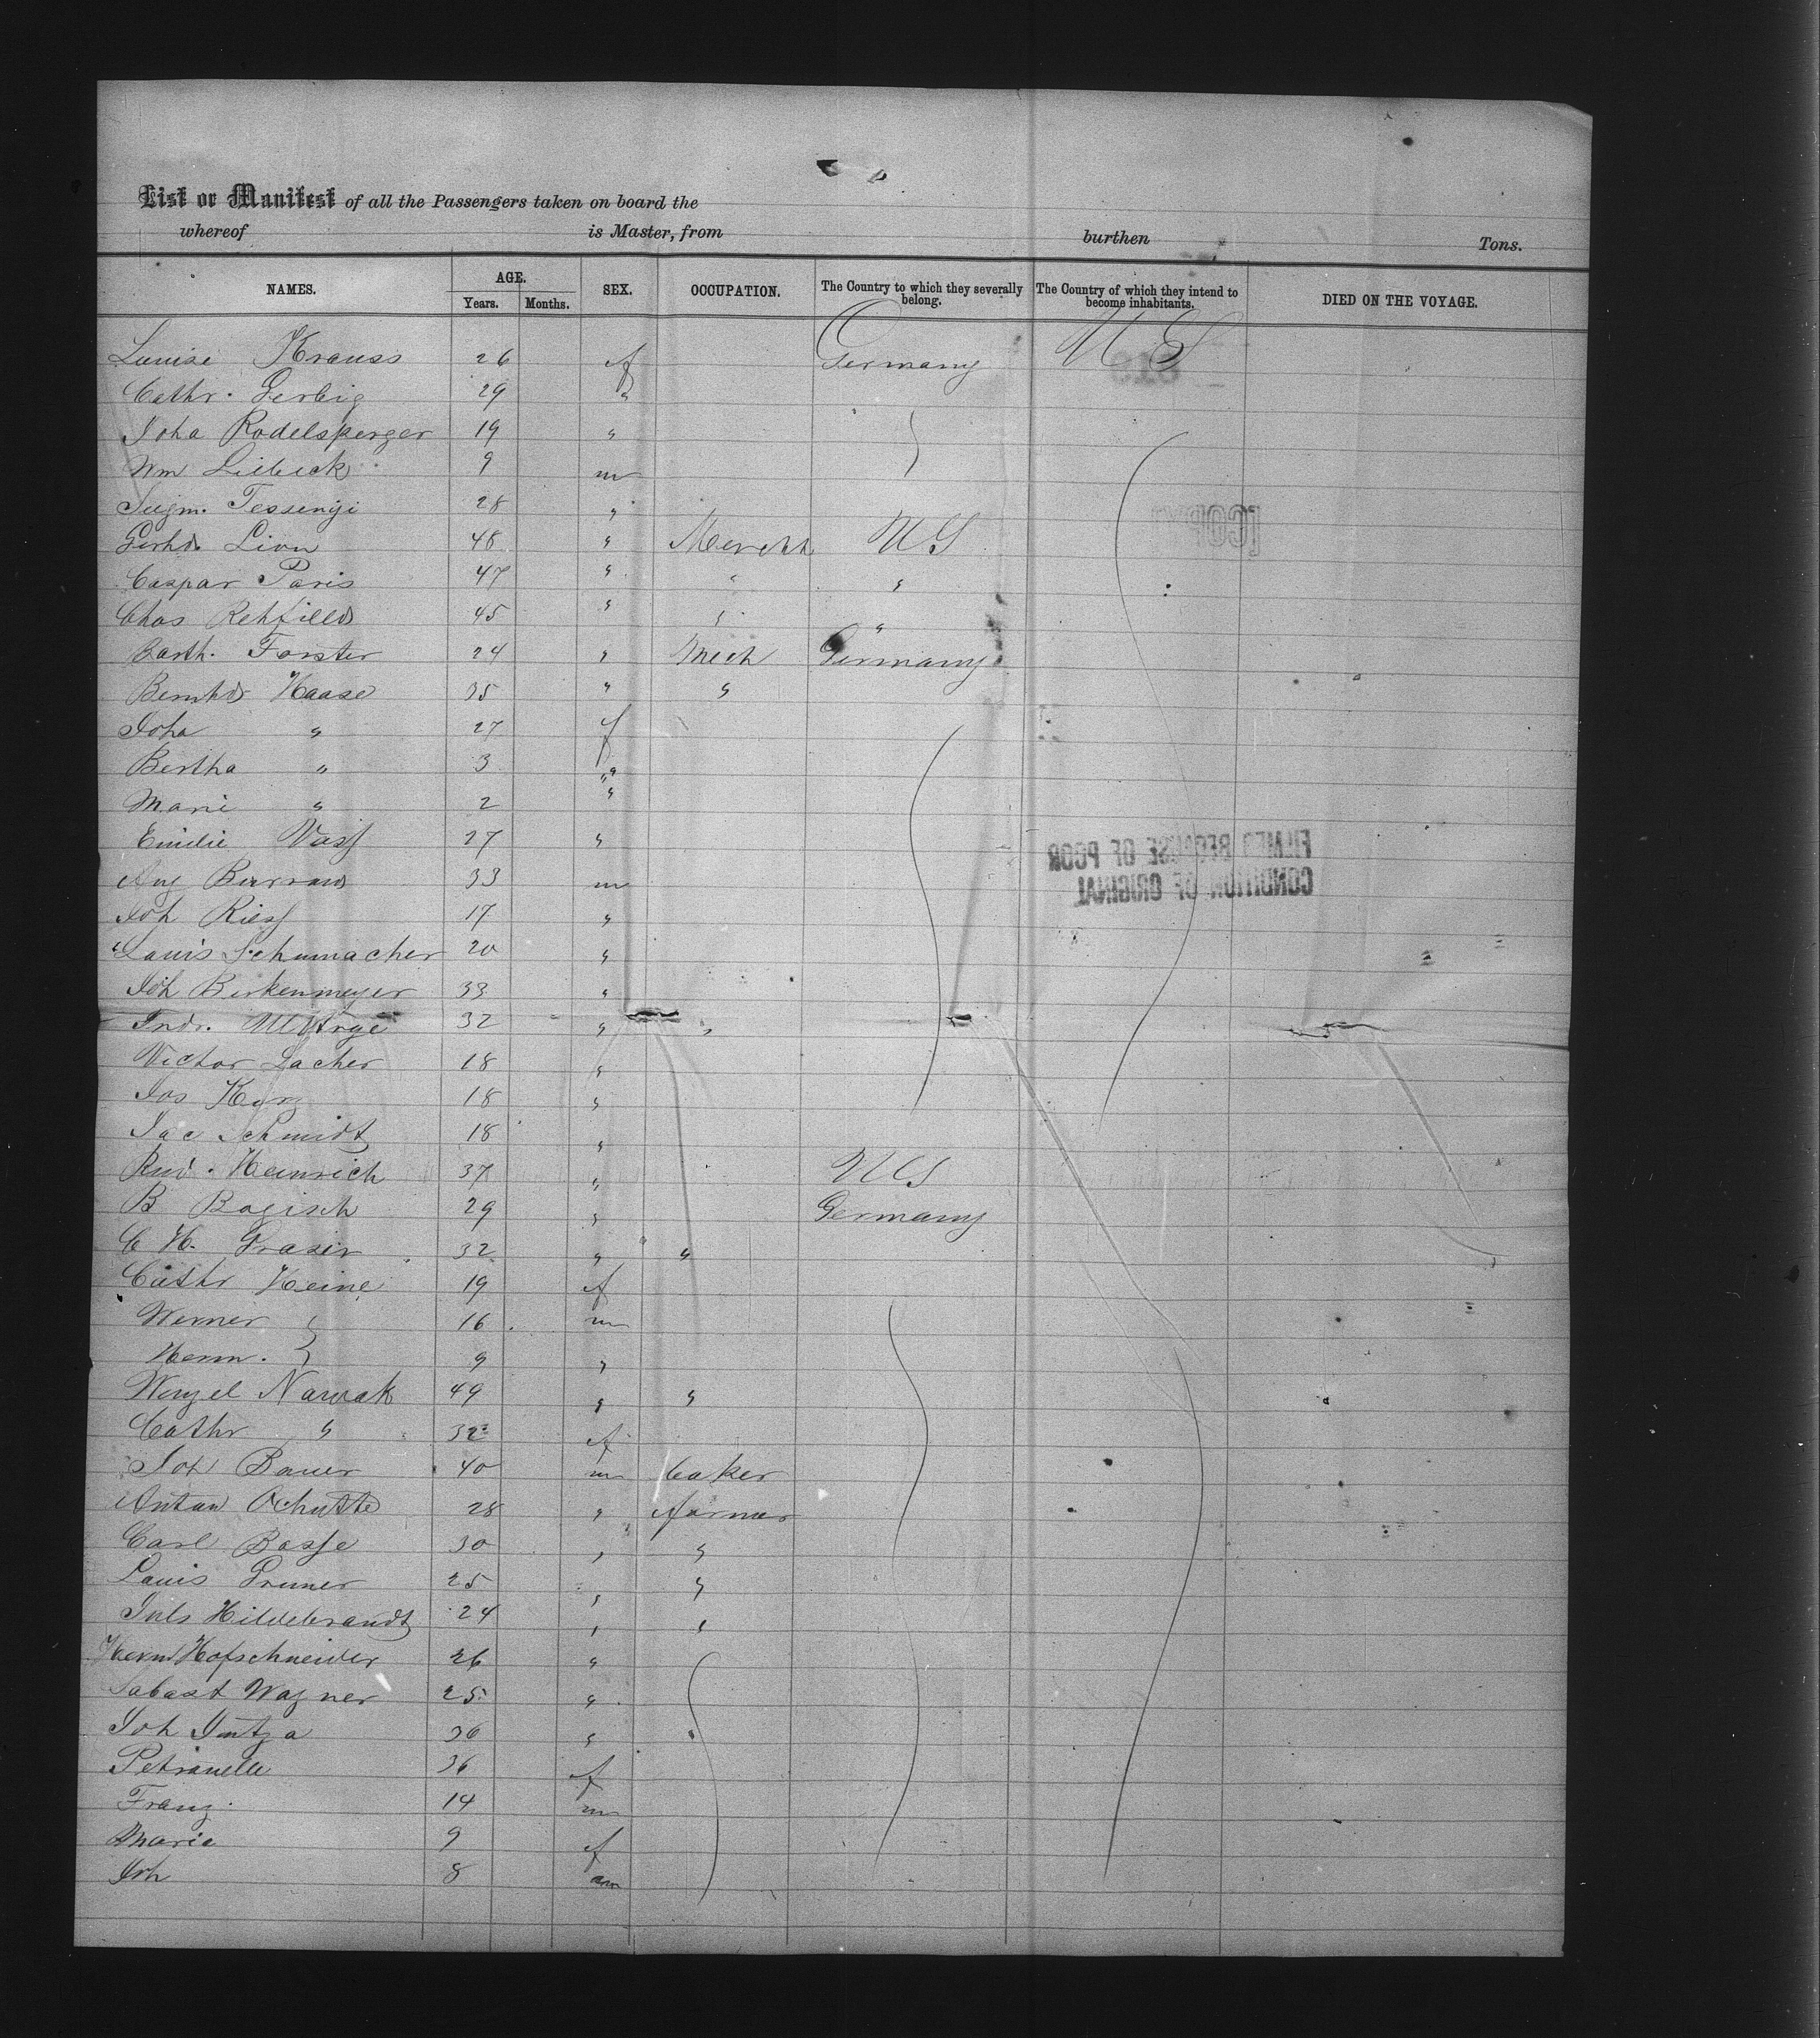 List or Manifest of all the Passengers taken on board the
whereof is Master, from burthen Tons.
NAMES. AGE. SEX. OCCUPATION. The Country to which they severally belong. The Country of which they intend to become inhabitants. DIED ON THE VOYAGE.
Years. Months.
Louise Krauss 26 f Germany U S
Cathr. Gerbig 29 "
Joha Rodelsperger 19 "
Wm Liebeck 9 m
28 "
Gerhd. Lion 48 " Mercht U S
Caspar Paris 47 " " "
Chas Rehfield 45 " " "
Barth. Forster 24 " Mech Germany
Bernhd Haase 35 " "
Joha " 27 f
Bertha " 3 "
Marie " 2 "
Emilie Vass 27 "
Aug 33 m
Joh Riess 17 "
Louis Schumacher 20 "
Joh Birkenmeyer 33 "
32 " "
Victor Lacher 18 "
Jos Kurz 18 "
Jac Schmidt 18 "
Rud. Heinrich 37 " U S
B Bogisch 29 " Germany
C H. Graser 32 " "
Cathr Heine 19 f
Werner 16 m
Herm. 9 "
Wenzel Nawak 49 " "
Cathr " 32 f
Joh Bauer 40 m baker
Anton Schutte 28 " farmer
Carl Basse 30 " "
Louis Gruner 25 " "
Juls Hildebrandt 24 " "
Herm Hofschneider 26 "
Sabast Wagner 25 "
Joh 36 " "
Petronelle 36 f
Franz 14 m
Marie 9 f
Joh 8 m
[COPY]
FILMED BECAUSE OF POOR
CONDITION OF ORIGINAL